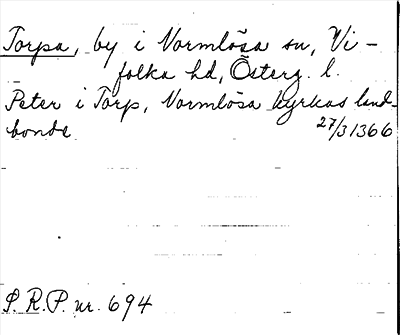 Torpa, by i Normlösa sn, Vi-
folka hd, Österg. l.
Peter i Torp, Normlösa kyrkas land-
bonde 27/3 1366
S. R. P. nr. 694